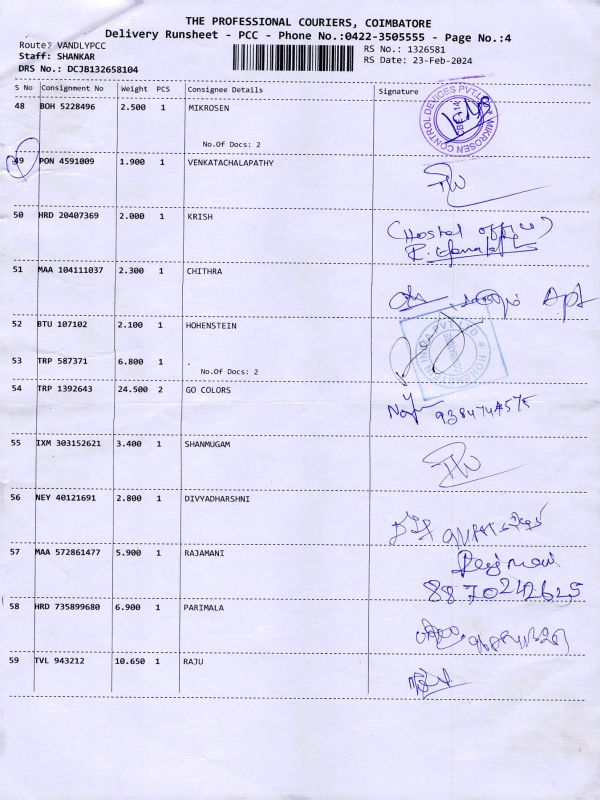 THE PROFESSIONAL COURIERS, COIMBATORE
Delivery Runsheet - PCC - Phone No.:0422-3505555 - Page No.:4
Route: VANDLYPCC
RS No.: 1326581
Staff: SHANKAR
RS Date: 23-Feb-2024
DRS No.: DCJB132658104
S No Consignment No Weight PCS Consignee Details Signature
48 BOH 5228496 2.500 1 MIKROSEN
No.Of Docs: 2
MIKROSEN CONTROL DEVICES PVT.LTD
49 PON 4591009 1.900 1 VENKATACHALAPATHY
50 HRD 20407369 2.000 1 KRISH
(Hostel office)
51 MAA 104111037 2.300 1 CHITHRA
Apt
52 BTU 107102 2.100 1 HOHENSTEIN
53 TRP 587371 6.800 1
No.Of Docs: 2
54 TRP 1392643 24.500 2 GO COLORS
55 IXM 303152621 3.400 1 SHANMUGAM
56 NEY 40121691 2.800 1 DIVYADHARSHNI
57 MAA 572861477 5.900 1 RAJAMANI
8870242625
58 HRD 735899680 6.900 1 PARIMALA
59 TVL 943212 10.650 1 RAJU